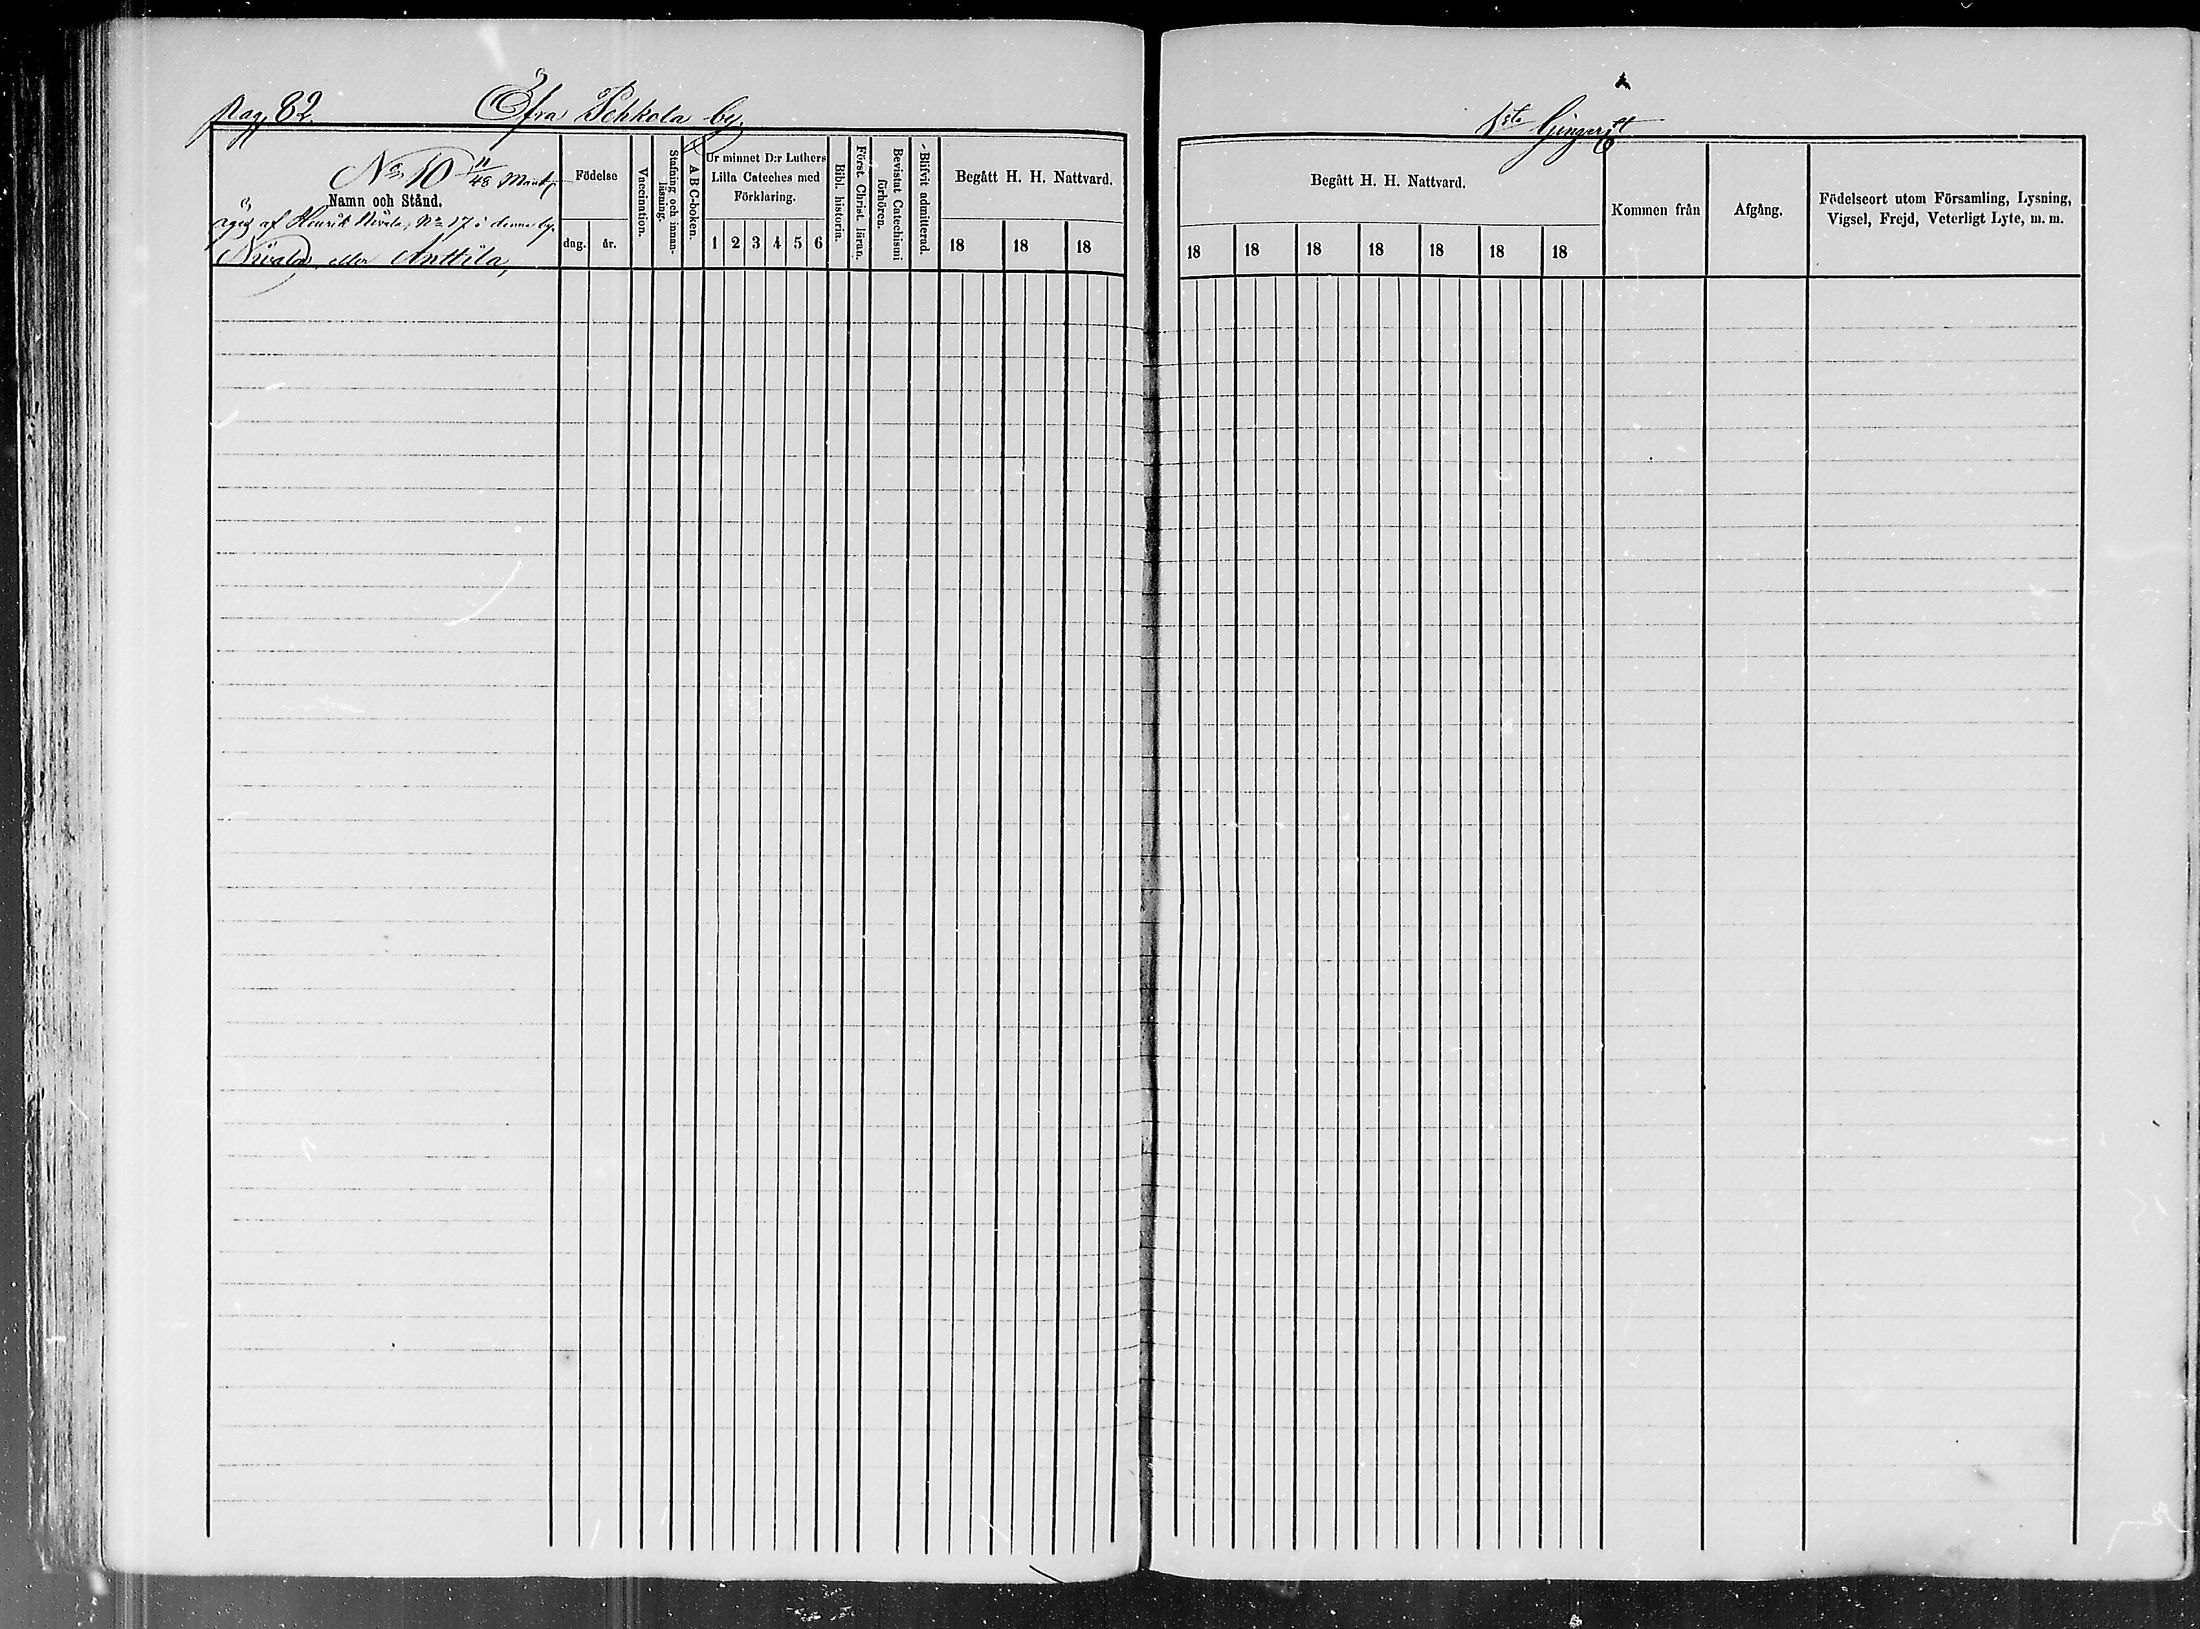 Pag 82.
Öfra Pehkola by.
No 10 11/48 Mantl
Namn och Stånd.
äges af Henrik Nivala, No 17 i denna by.
Nivala eller Anttila,
Födelse
dag. år.
Vaccination.
Stafning och innan-
läsning.
ABC-boken.
Ur minnet D:r Luthers
Lilla Cateches med
Förklaring.
1 2 3 4 5 6
Bibl. historia.
Först. Christ. läran.
Bevistat Catechismi
förhören.
Blifvit admitterad.
Begått H. H. Nattvard.
18 18 18
1sta
Begått H. H. Nattvard.
18 18 18 18 18 18 18
Kommen från
Afgång.
Födelseort utom Församling, Lysning,
Vigsel, Frejd, Veterligt Lyte, m. m.